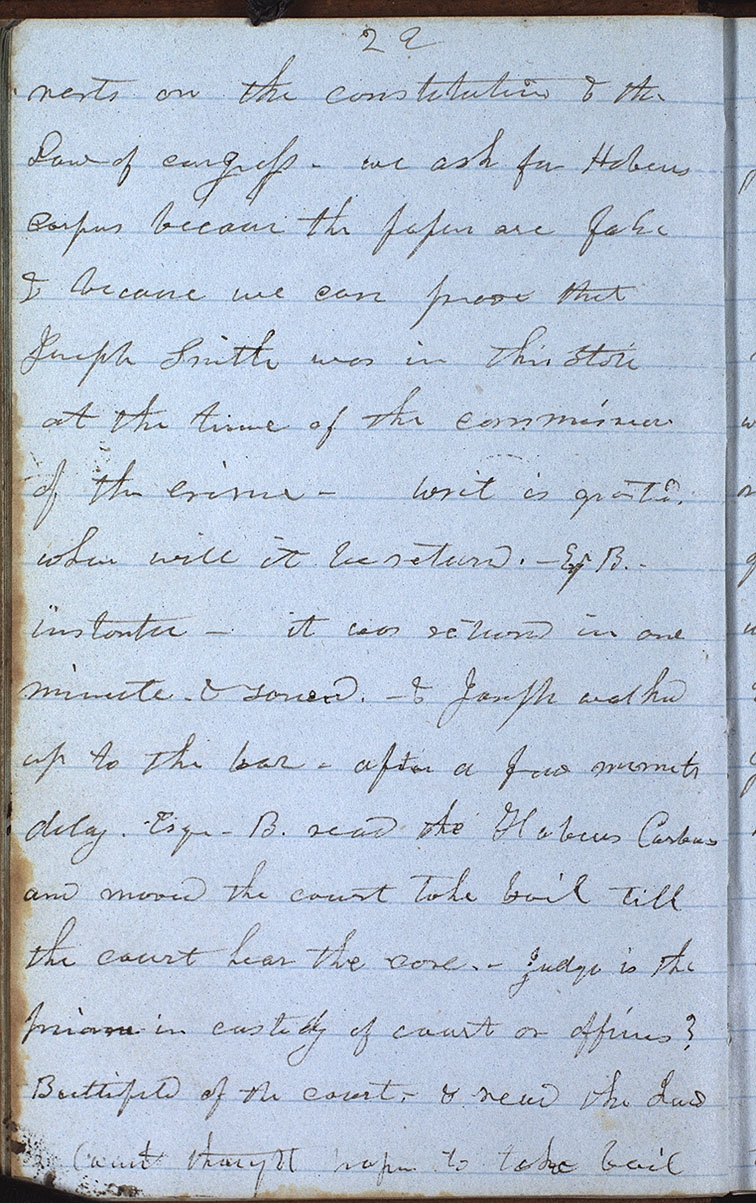 22
rests on the constitution & the
Law of congress - we ask for Habeus
corpus because the papers are false
& because we can prove that
Joseph Smith was in this State
at the time of the commission
of the crime - writ is granted.
when will it be return. - Esq B. -
instanter - it was returned in one
minute - & served. - & Joseph walked
up to the bar - after a few minuets
delay. Esqr - B. read the Habeus Corpus
and moved the court take bail till
the court hear the case. - judge is the
prisoner in custody of court or officers?
Butterfield of the court, - & read the Law
Court thought proper to take bail